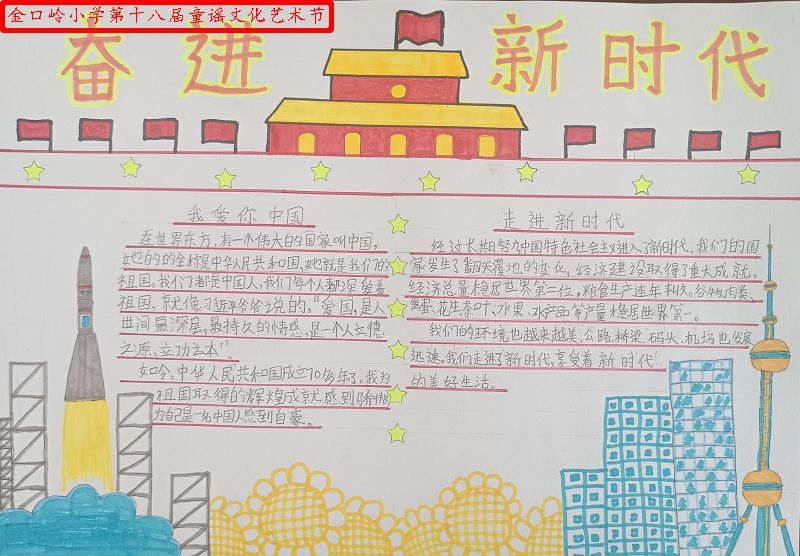 金口岭小学第十八届童谣文化艺术节
奋进新时代
我爱你中国
在世界东方,有一个伟大的国家叫中国,
她的的全称是中华人民共和国,她就是我们的
祖国,我们都是中国人,我们每个人都深爱着
祖国,就像习近平爷爷说的,“爱国,是人
世间最深层,最持久的情感,是一个人立德
之源、立功之本”。
如今,中华人民共和国成立70多年了。我为
祖国取得的辉煌成就感到骄傲
为自己是一名中国人感到自豪。
走进新时代
经过长期努力中国特色社会主义进入了新时代,我们的国
家发生了翻天覆地的变化,经济建设取得了重大成就,
经济总量稳居世界第二位,粮食生产连年丰收。谷物、肉类、
禽蛋、花生、茶叶、水果、水产品等产量稳居世界第一。
我们的环境也越来越美,公路、桥梁、码头、机场也发展
迅速。我们走进了新时代,享受着新时代
的美好生活。